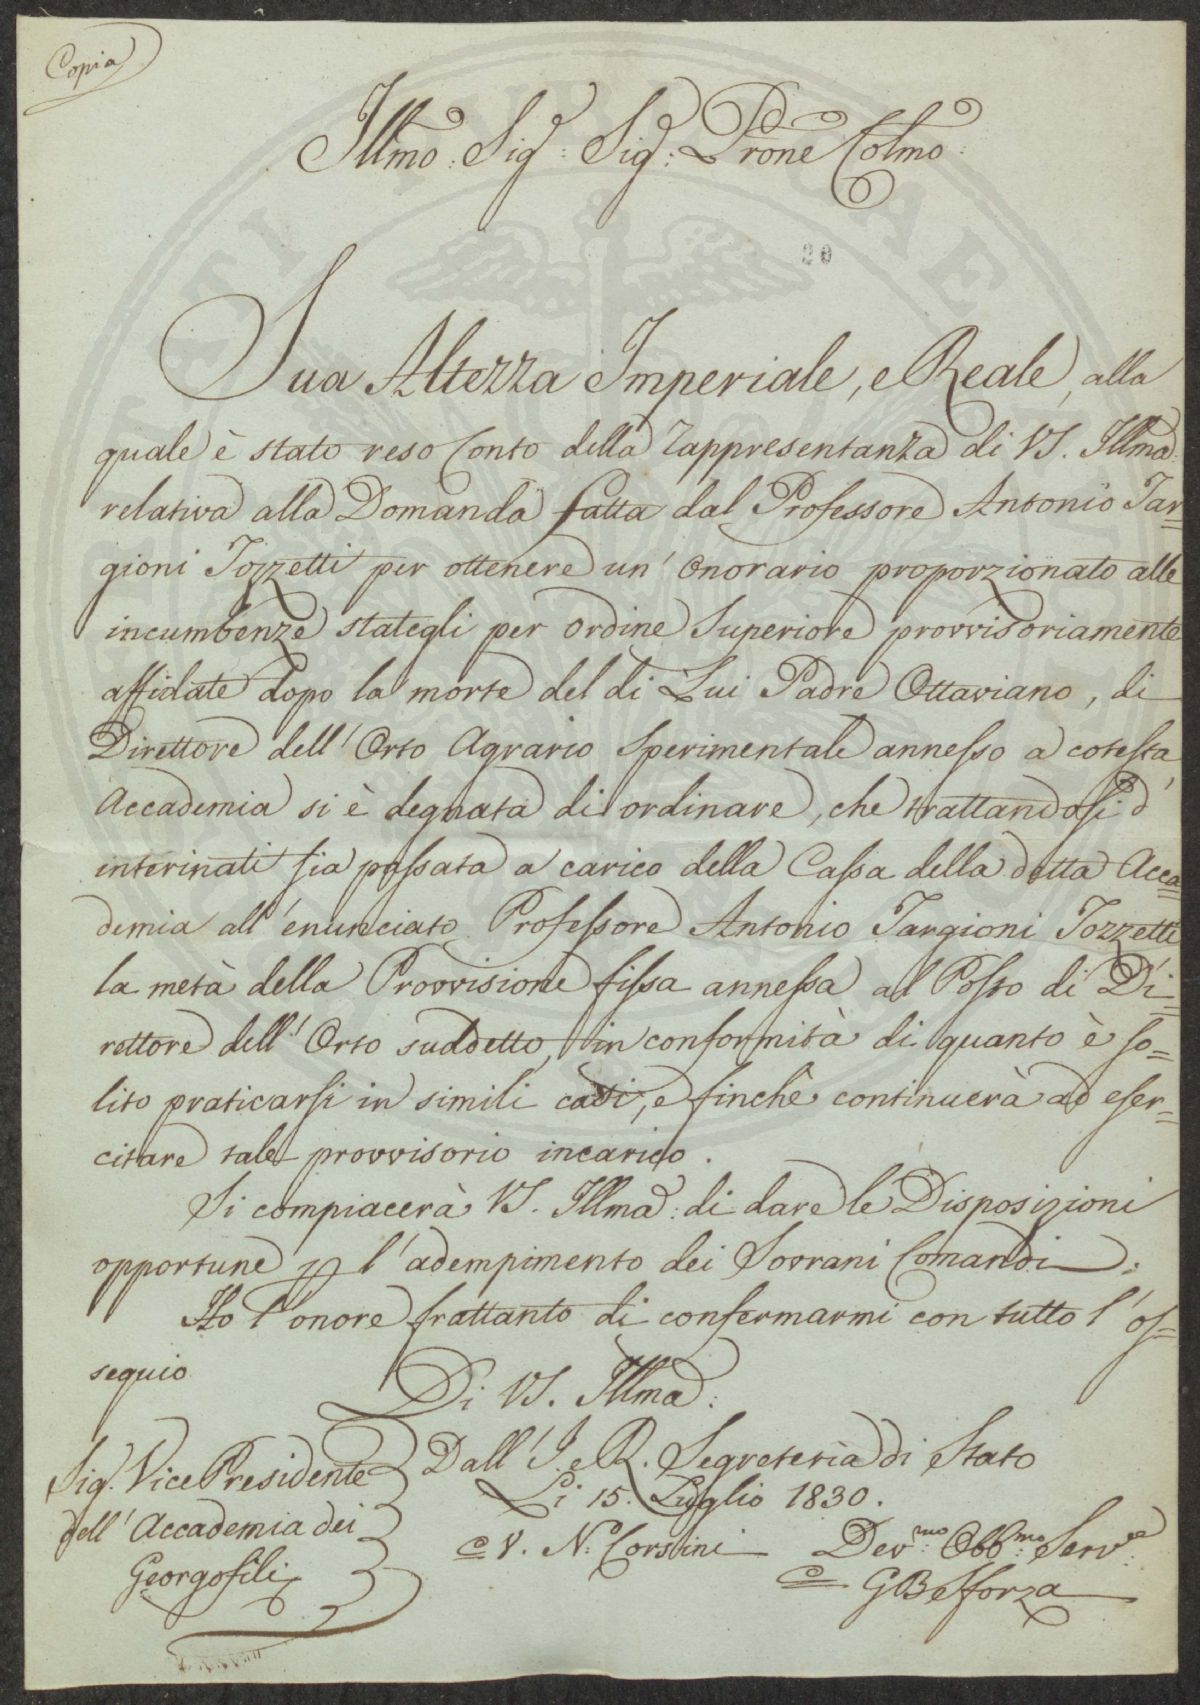 Copia
Illmo: Sig: Sig: Prone Colmo:
20
Sua Altezza Imperiale, e Reale, alla
quale è stato reso Conto della rappresentanza di VS. Illma:
relativa alla Domanda fatta dal Professore Antonio Tar=
gioni Tozzetti per ottenere un' onorario proporzionato alle
incumbenze stategli per ordine Superiore provvisoriamente
affidate dopo la morte del di Lui Padre Ottaviano, di
Direttore dell' Orto Agrario Sperimentale annesso a cotesta
Accademia si è degnata di ordinare, che trattandosi d'
interinati sia passata a carico della Cassa della detta Acca=
demia all' enunciato Professore Antonio Targioni Tozzetti
la metà della Provvisione fissa annessa al Posto di Di=
rettore dell' Orto suddetto, in conformità di quanto è so=
lito praticarsi in simili casi, e finchè continuerà ad eser=
citare tale provvisorio incarico.
Si compiacerà VS. Illma: di dare le Disposizioni
opportune p l' adempimento dei Sovrani Comandi.
Ho l' onore frattanto di confermarmi con tutto l' os=
sequio
Di VS. Illma:
Sig. Vice Presidente
dell' Accademia dei
Georgofili
Dall' I. e R. Segreteria di Stato
Li 15. Luglio 1830.
c V. N. Corsini
Dev.mo Obb.mo Serv.re
c G B Sforza